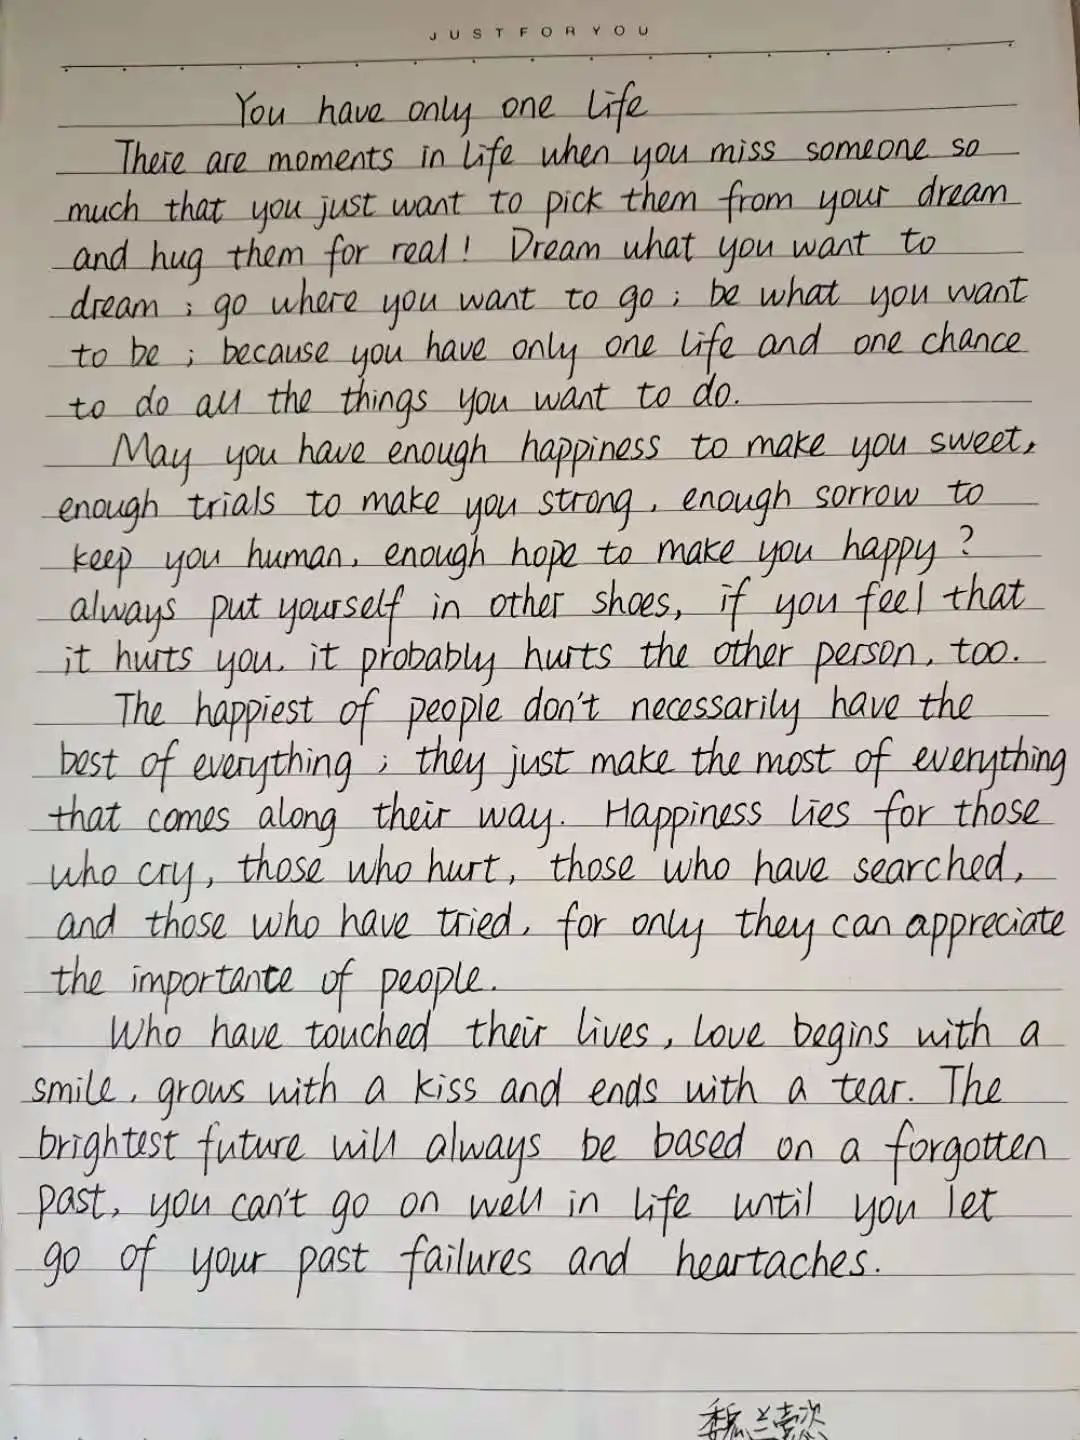 JUST FOR YOU
You have only one life
There are moments in life when you miss someone so
much that you just want to pick them from your dream
and hug them for real! Dream what you want to
dream; go where you want to go; be what you want
to be; because you have only one life and one chance
to do all the things you want to do.
May you have enough happiness to make you sweet,
enough trials to make you strong, enough sorrow to
keep you human, enough hope to make you happy?
always put yourself in other shoes, if you feel that
it hurts you, it probably hurts the other person, too.
The happiest of people don't necessarily have the
best of everything; they just make the most of everything
that comes along their way. Happiness lies for those
who cry, those who hurt, those who have searched,
and those who have tried, for only they can appreciate
the importance of people.
Who have touched their lives, love begins with a
smile, grows with a kiss and ends with a tear. The
brightest future will always be based on a forgotten
past, you can't go on well in life until you let
go of your past failures and heartaches.
魏兰懿